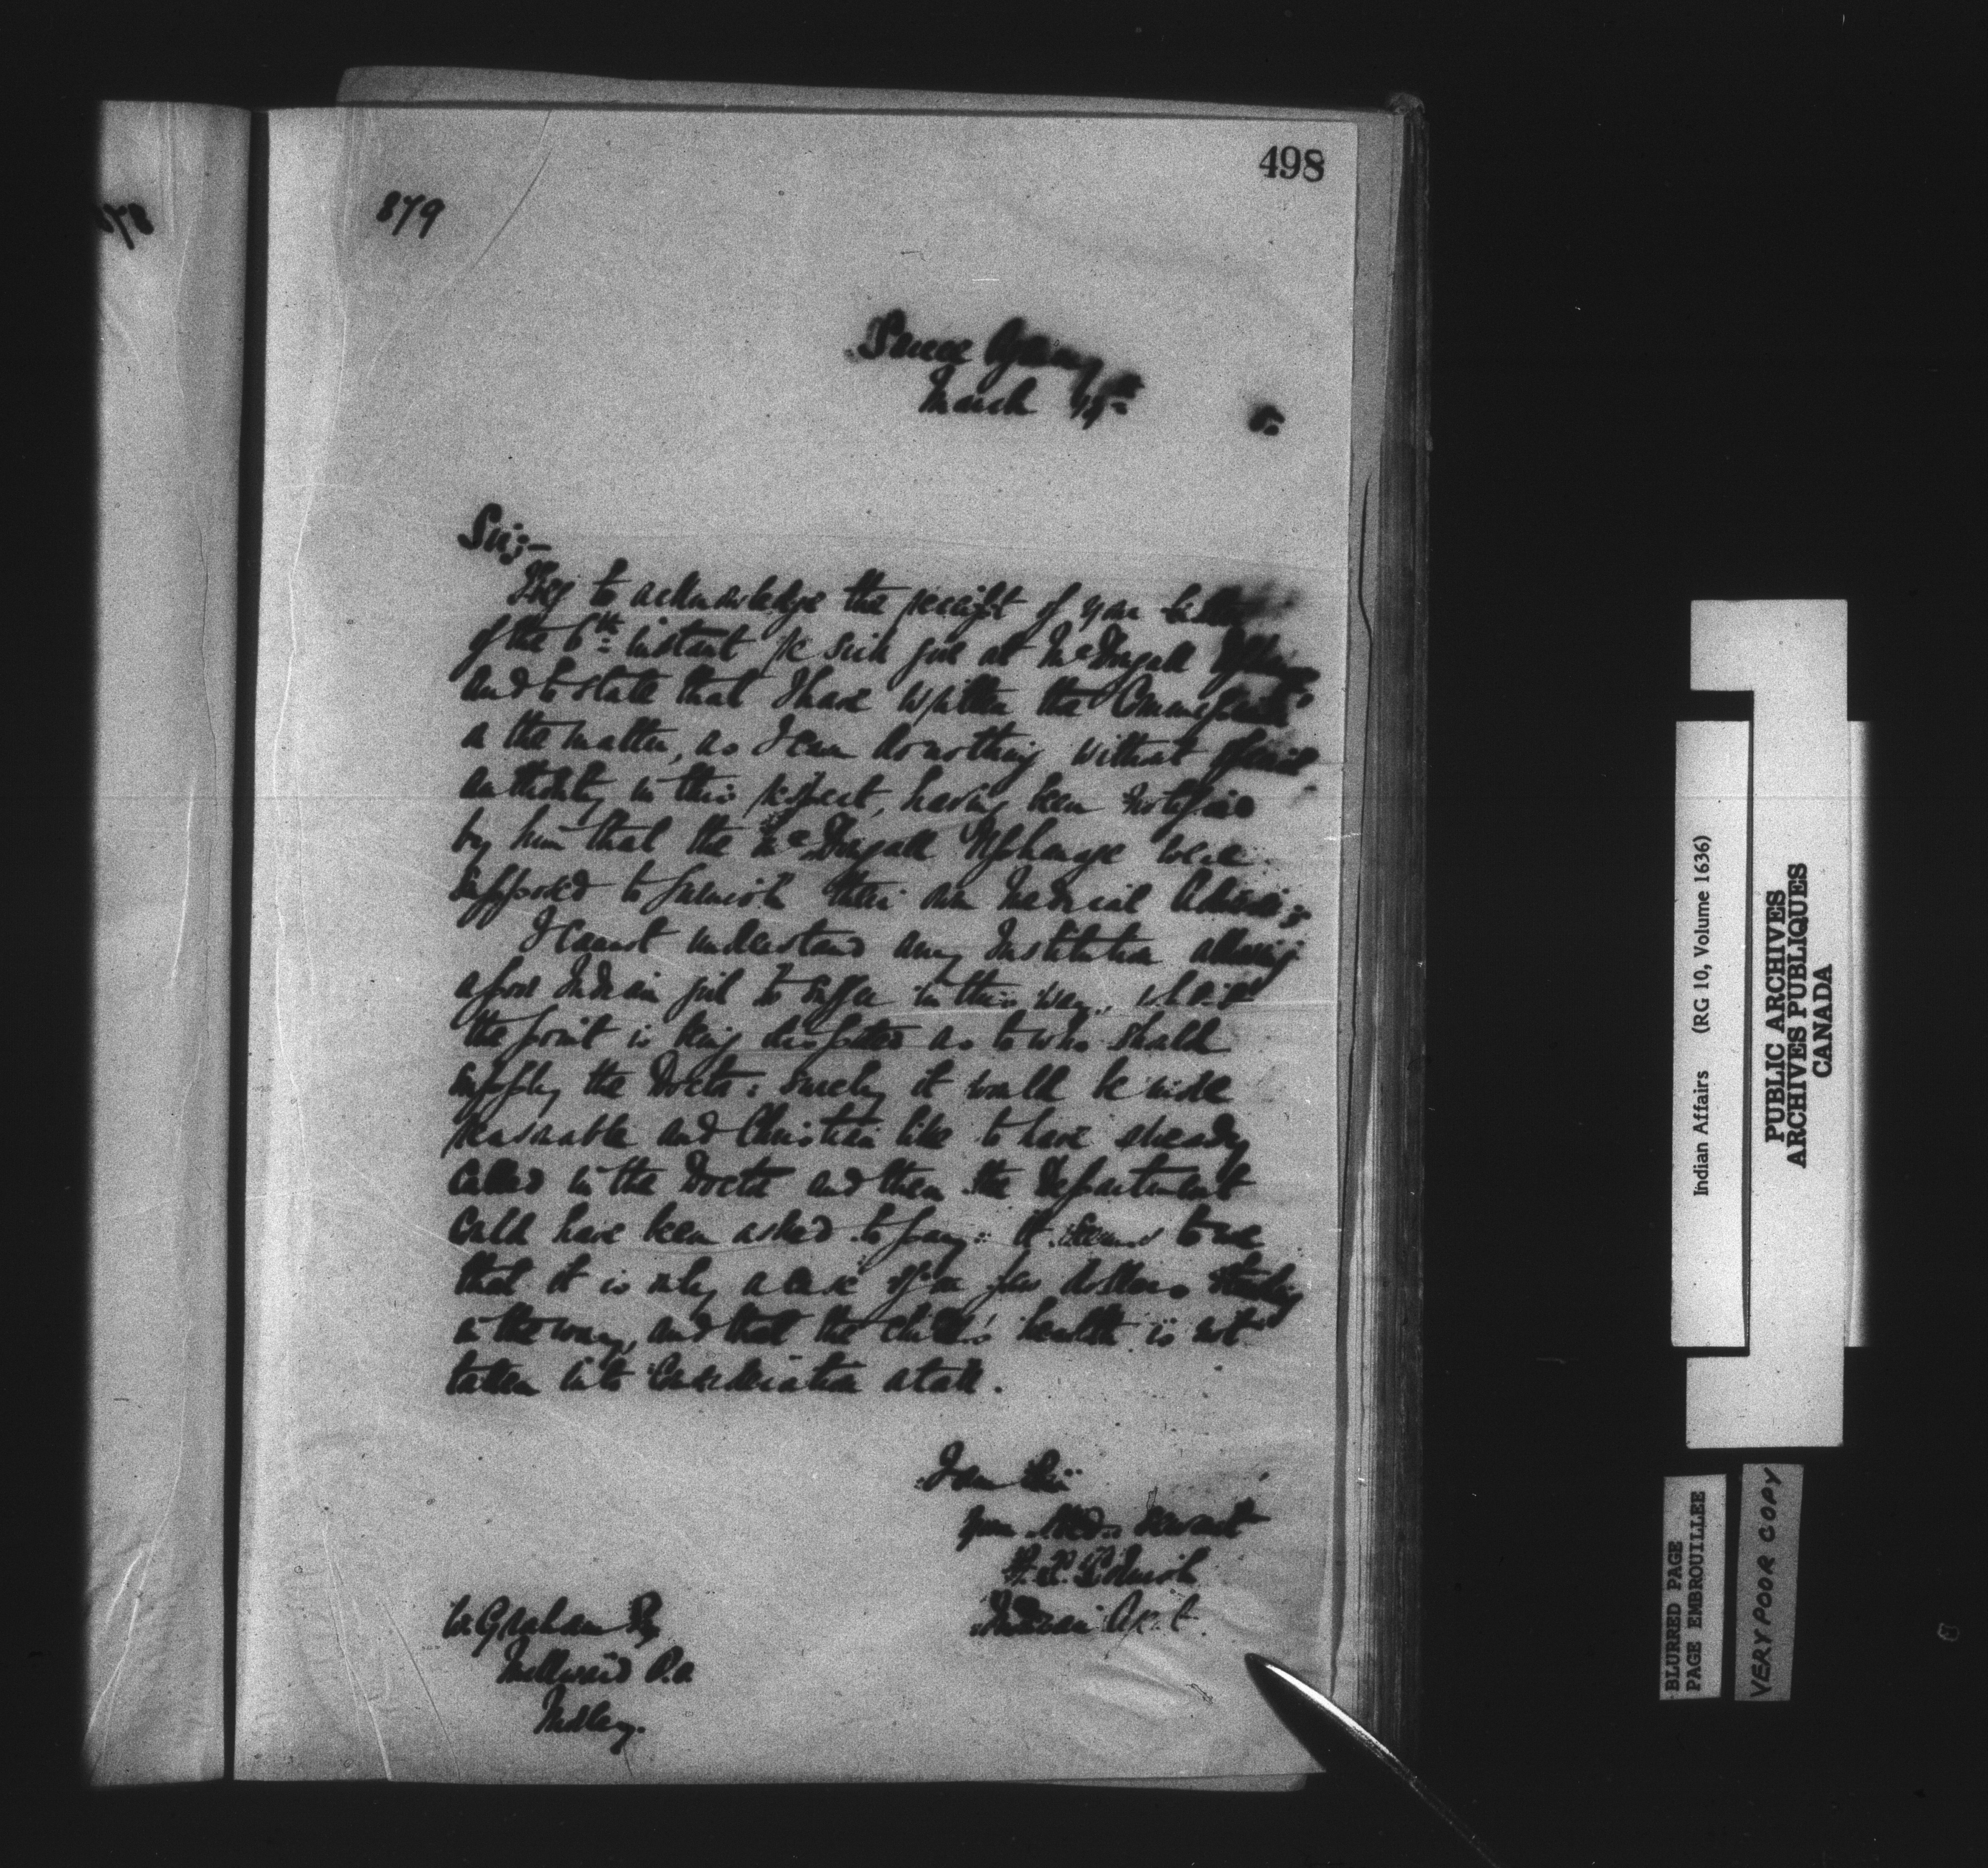 498
879
Sarcee Agency
March 14th
6.
Sir;-
I beg to acknowledge the receipt of your letter
of the 6th instant re sick girl at McDougall Orphanage
and to state that I have written the Commissioner
in the matter, as I can do nothing without special
authority in this respect, having been notified
by him that the McDougall Orphanage were
supposed to furnish their own medical
I cannot understand any Institution allowing
a poor Indian girl to suffer in this way, whilst
the point is being disputed as to who should
supply the Doctor: surely it would be more
reasonable and Christian like to have already
called in the Doctor and then the Department
could have been asked to pay: it seems to me
that it is only a case of a few dollars standing
in the way, and that the child's health is not
taken into consideration at all.
I am Sir
Your Obed. Servant
Indian Agent
W. Graham Esq
P.O.
Morley.
Indian Affairs (RG 10, Volume 1636)
PUBLIC ARCHIVES
ARCHIVES PUBLIQUES
CANADA
BLURRED PAGE
PAGE EMBROUILLEE
VERY POOR COPY